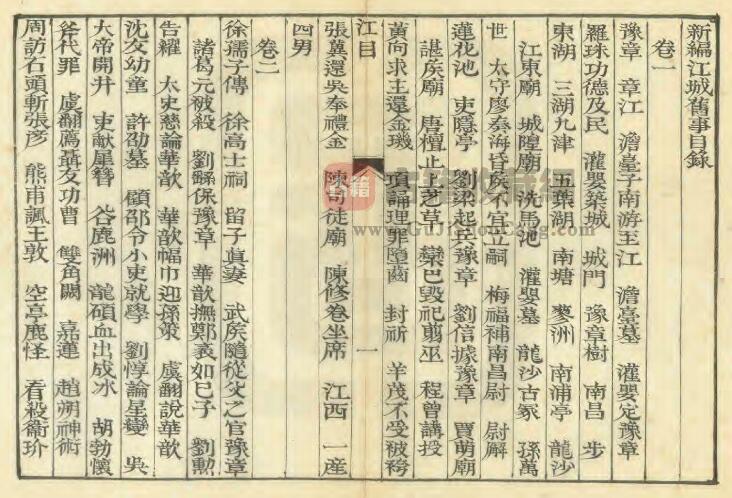 新編江城舊事目錄
卷一
豫章　章江　澹臺子南游至江　澹臺墓　灌嬰定豫章
羅珠功德及民　灌嬰築城　城門　豫章樹　南昌　步
東湖　三湖九津　五葉湖　南塘　蓼洲　南浦亭　龍沙
江東廟　城隍廟　洗馬池　灌嬰墓　龍沙古冢　孫萬
世　太守廖奏海昏矦不宜立嗣　梅福補南昌尉　尉廨
蓮花池　吏隱亭　劉梁起兵豫章　劉信據豫章　賈萌廟
諶矦廟　唐檀止上芝草　欒巴毀祀翦巫　程曾講授
黃向求主還金璣　項誦理罪墮齒　封祈　羊茂不受被袴
江目　一
張冀還吳奉禮金　陳司徒廟　陳修卷坐席　江西一產
四男
卷二
徐孺子傳　徐高士祠　留子眞妻　武矦隨從父之官豫章
諸葛元被殺　劉繇保豫章　華歆撫鄭義如已子　劉勳
告糴　太史慈論華歆　華歆幅巾迎孫策　虞翻說華歆
沈友幼童　許劭墓　顧邵令小吏就學　劉惇論星變　吳
大帝開井　吏獻犀簪　谷鹿洲　龍碩血出成冰　胡勃懷
斧代罪　虞翻薦聶友功曹　雙角闕　嘉蓮　趙朔神術
周訪石頭斬張彥　熊甫諷王敦　空亭鹿怪　看殺衞玠
www.GuJiShouCang.com